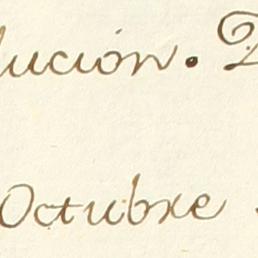 lución. D
Octubre